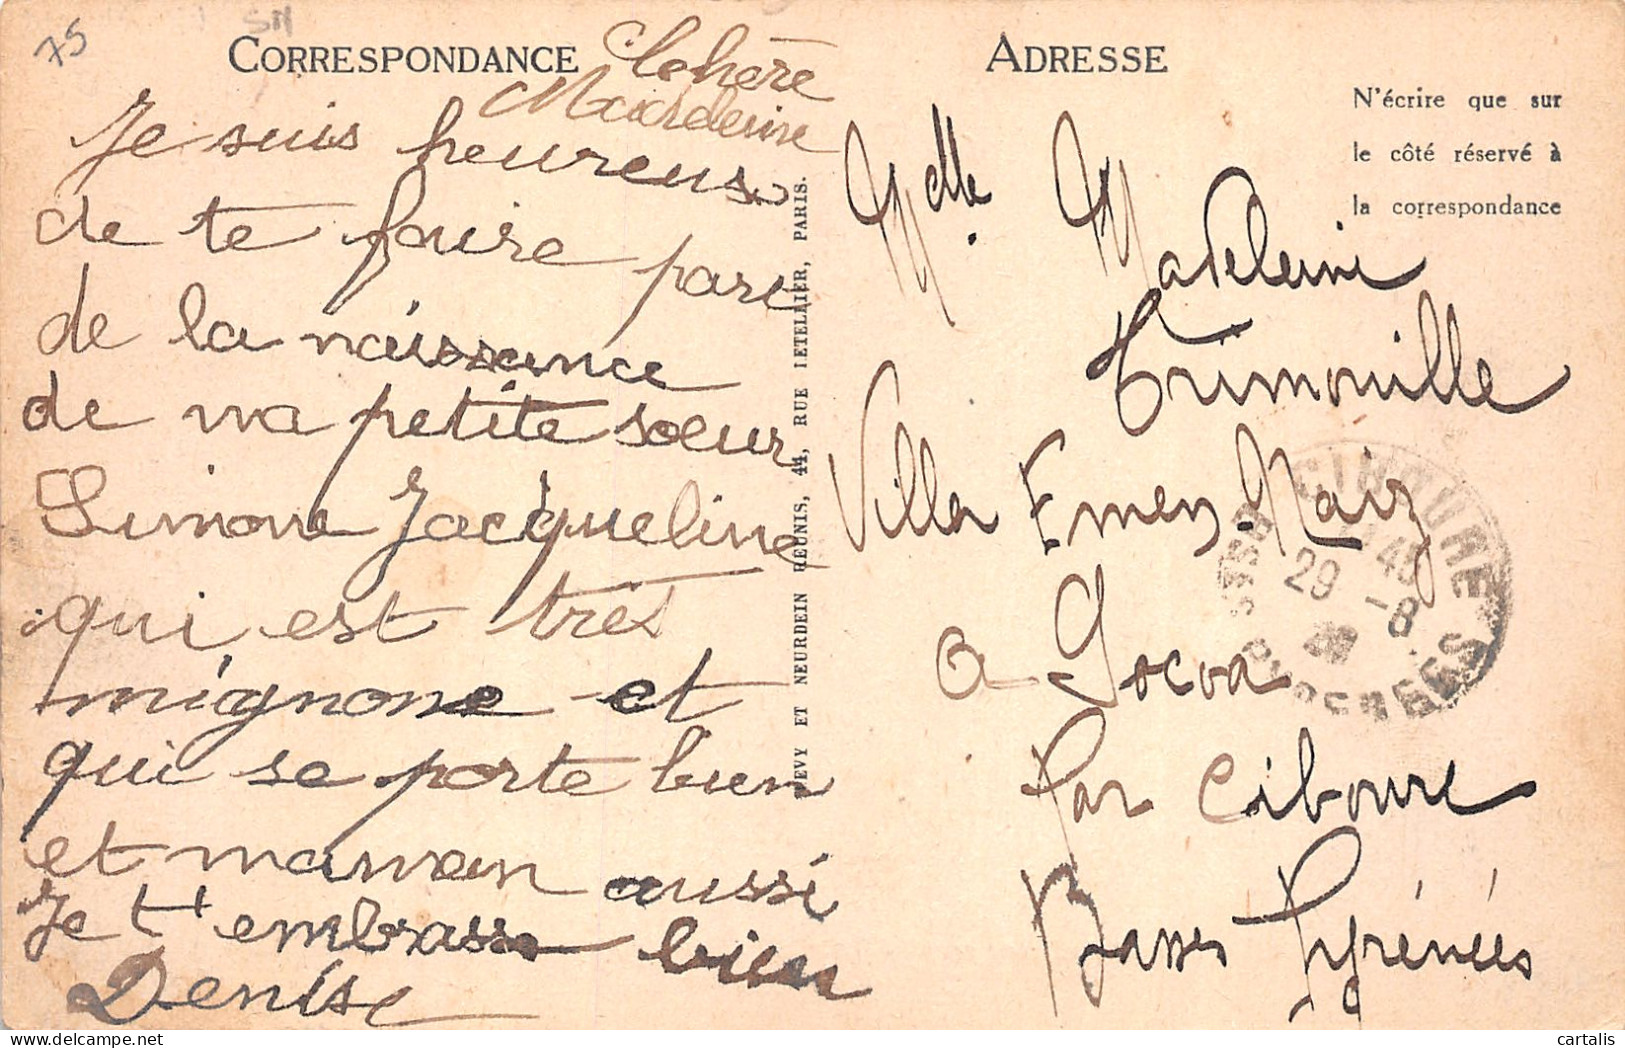 75
CORRESPONDANCE
Chère
Madeleine
Je suis heureuse
de te faire part
de la naissance
de ma petite sœur
Simone Jacqueline
qui est très
mignone et
qui se porte bien
et maman aussi
Je t'embrasse bien
Denise
LEVY ET NEURDEIN RÉUNIS, 44, RUE LETELLIER, PARIS.
ADRESSE
N'écrire que sur
le côté réservé à
la correspondance
Melle Madeleine
Trimouille
Villa Emen-Naiz
a Socoa
Par Ciboure
Basses Pyrénées
CIBOURE
45
29 -8
BSES PYRENEES
cartalis